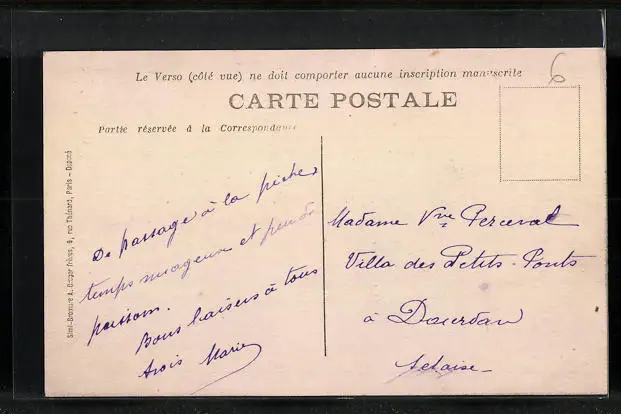 Le Verso (côté vue) ne doit comporter aucune inscription manuscrite
6
CARTE POSTALE
Partie réservée à la Correspondance
De passage à la pêche
temps nuageux et peu de
poisson.
Bons baisers à tous
trois Marie
Madame Vve Perceval
Villa des Petits-Ponts
à Dourdan
Set Oise
Simi-Bromure A. Breger frères, 9, rue Thénard, Paris - Déposé